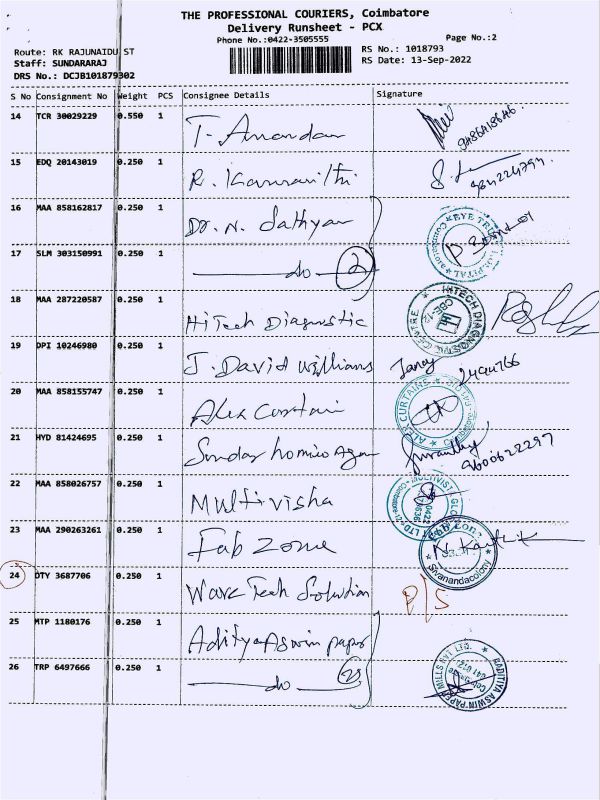 THE PROFESSIONAL COURIERS, Coimbatore
Delivery Runsheet - PCX
Phone No.:0422-3505555 Page No.:2
Route: RK RAJUNAIDU ST RS No.: 1018793
Staff: SUNDARARAJ RS Date: 13-Sep-2022
DRS No.: DCJB101879302
S No Consignment No Weight PCS Consignee Details Signature
14 TCR 30029229 0.550 1 T. Anandan
15 EDQ 20143019 0.250 1 R.
16 MAA 858162817 0.250 1 Dr. N. Sathyan
17 SLM 303150991 0.250 1 do 2
18 MAA 287220587 0.250 1 HiTech Diagnostic
HITECH DIAGNOSTIC CENTRE
19 DPI 10246980 0.250 1 J. David williams
20 MAA 858155747 0.250 1 Alex Curtain
ALEX CURTAINS
21 HYD 81424695 0.250 1 Sunday homieo
9600622297
22 MAA 858026757 0.250 1 Multivisha
23 MAA 290263261 0.250 1 Fab Zone
Fab Zone
Sivanandacolony
24 OTY 3687706 0.250 1 Wave Tech Solution P/S
25 MTP 1180176 0.250 1 Aditya Aswin paper
26 TRP 6497666 0.250 1 do
RADITIYA ASWIN PAPER MILLS PVT LTD.